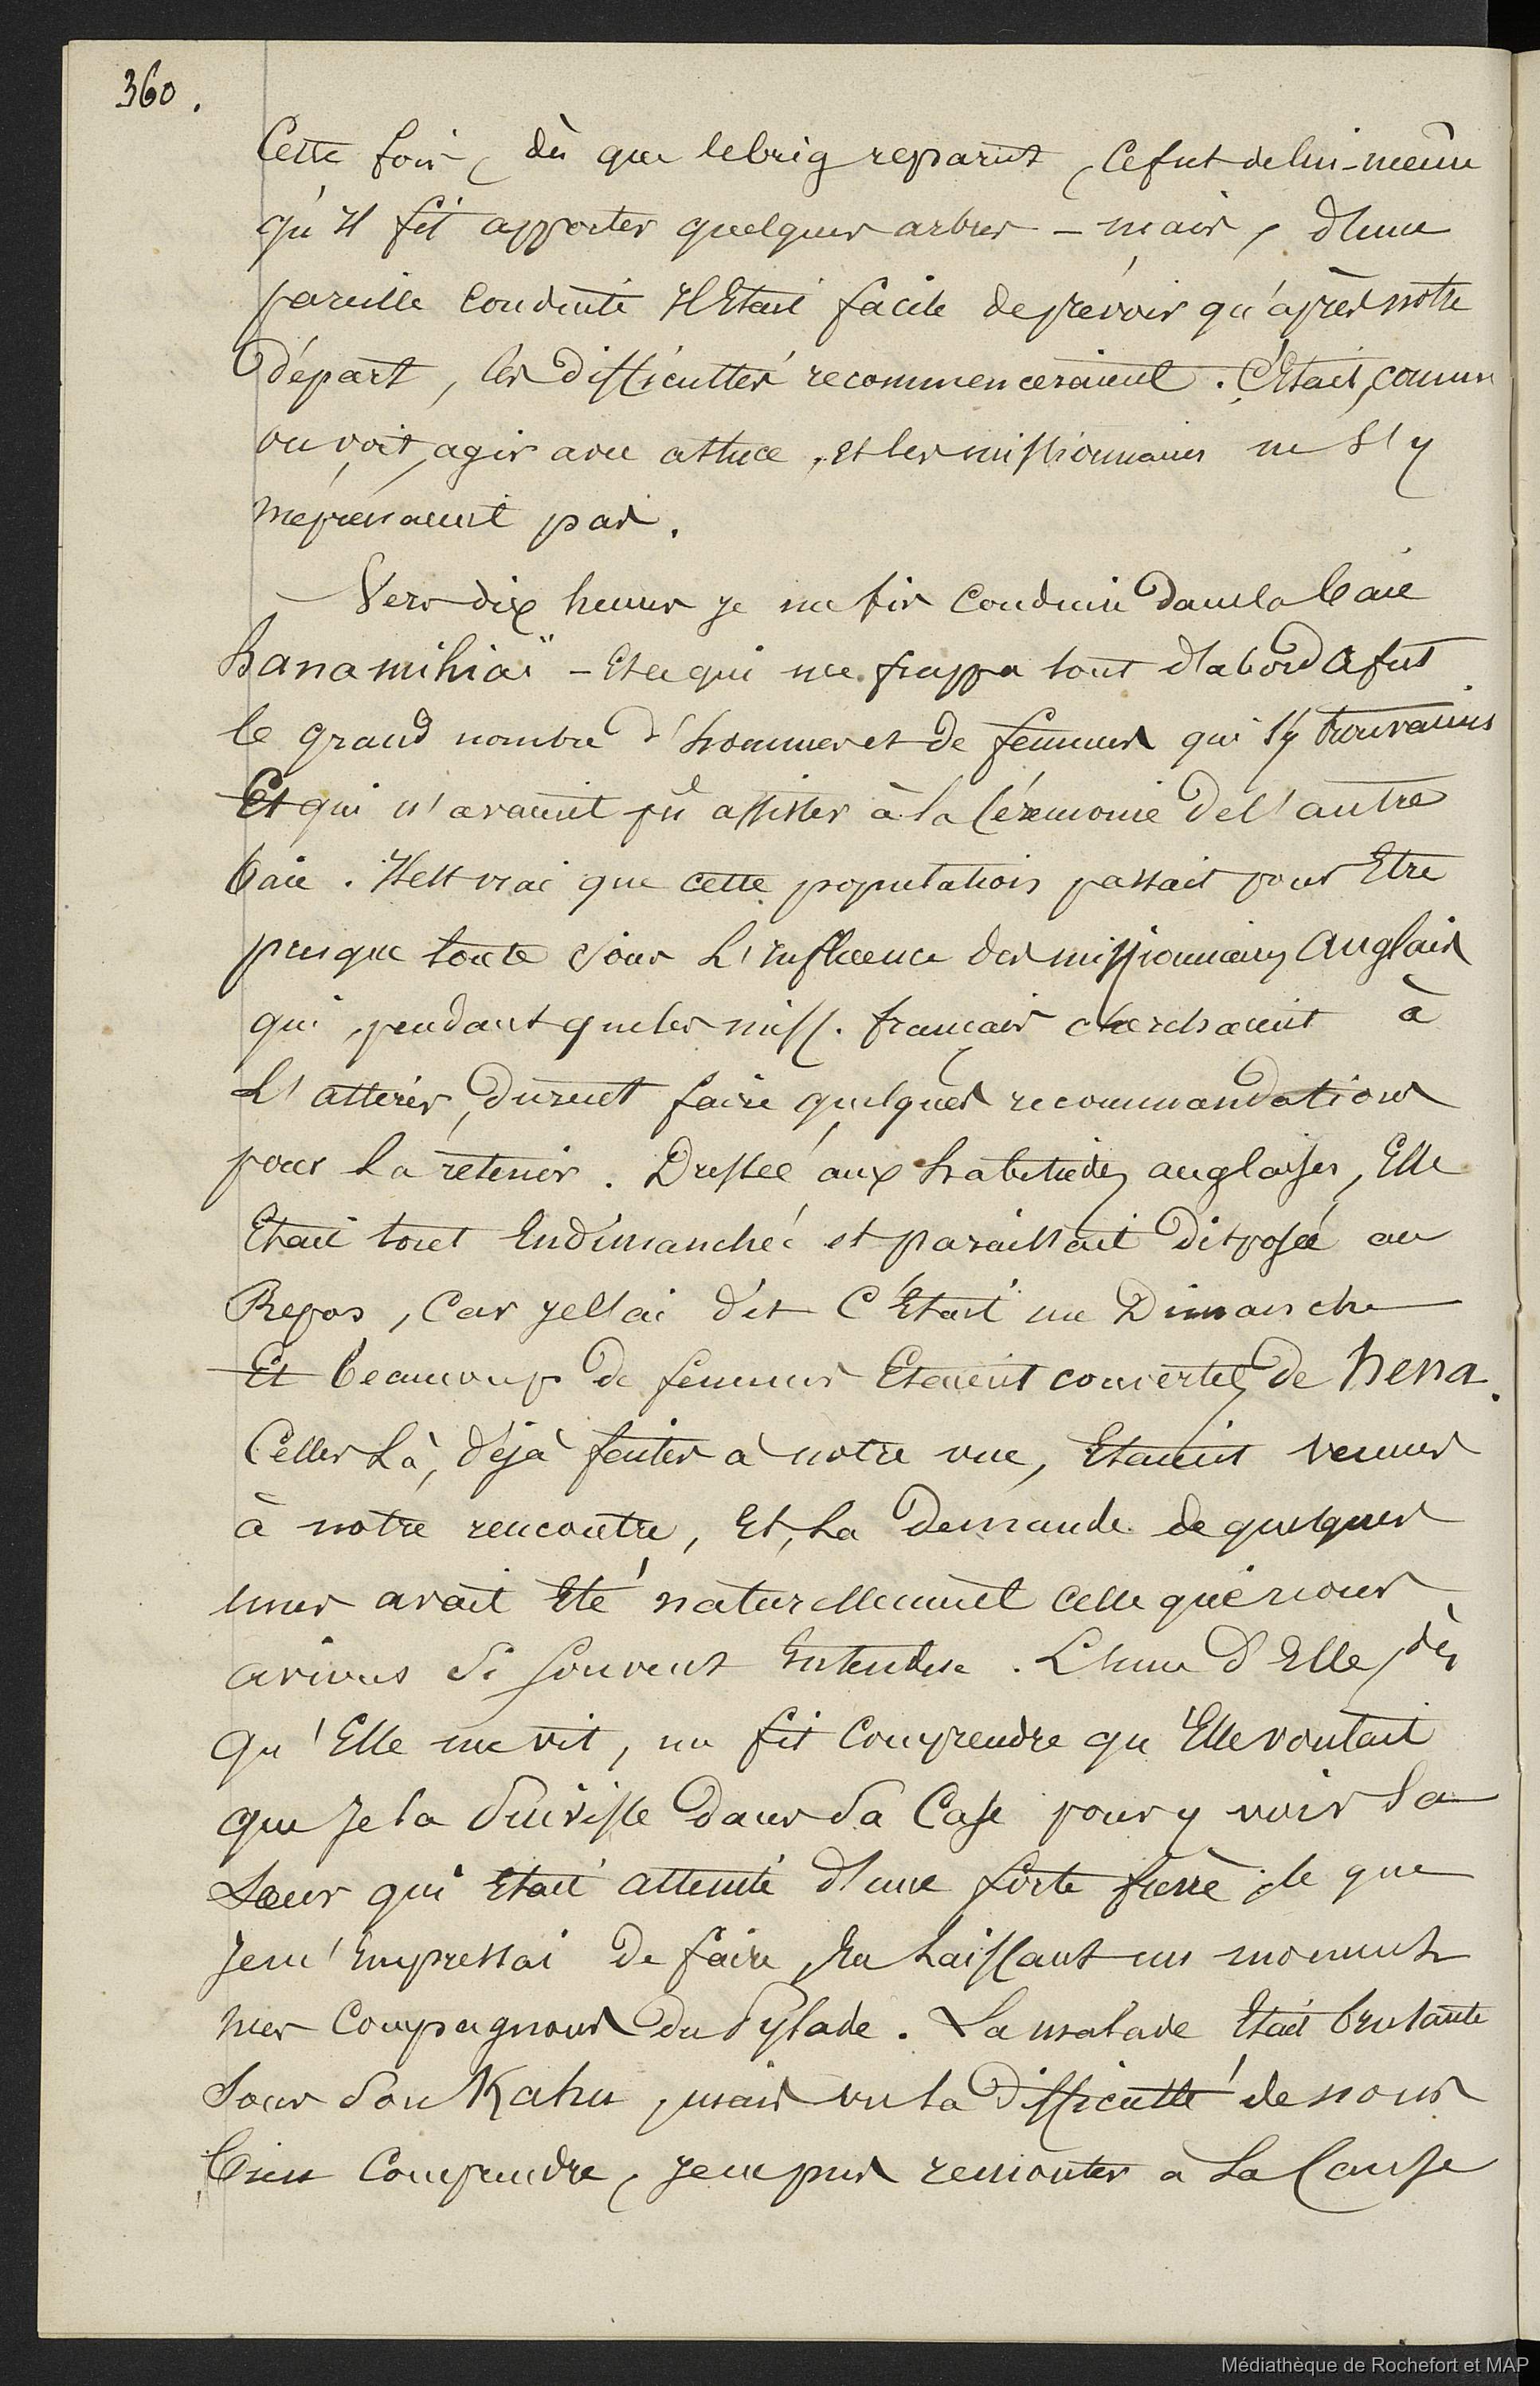 360.
Cette fois, dès que le brig reparut, ce fut de lui-même
qu'il fit apporter quelques arbres - mais, d'une
pareille conduite il Etait facile de prévoir qu'après notre
départ, les difficultés recommenceraient. C'Etait, comme
on voit, agir avec astuce, et les missionnaires ne s'y
méprenaient pas.
Vers dix heures je me fis conduire dans la baie
hanamihiaï - Et ce qui me frappa tout d'abord ce fut
le grand nombre d'hommes et de femmes qui s'y trouvaient
Et qui n'avaient pu assister à la Cérémonie de l'autre
baie. Il est vrai que cette population passait pour Etre
presque toute sous l'influence des missionnaires anglais
qui, pendant que les miss. français cherchaient à
l'attirer, durent faire quelques recommandations
pour la retenir. Dressée aux habitudes anglaises, Elle
Etait tout Endimanchée et paraissait disposée au
Repos, Car je l'ai dit C'Etait un Dimanche
Et beaucoup de femmes Etaient couvertes de hena.
Celles là, déjà faites à notre vue, Etaient venues
à notre rencontre, Et, la demande de quelques
unes avait Eté naturellement celle que nous
avions si souvent Entendue. L'une d'Elle, dès
qu'Elle me vit, me fit comprendre qu'Elle voulait
que je la suivisse dans sa Case pour y voir sa
Sœur qui Etait atteinte d'une forte fièvre; ce que
je m'Empressai de faire, En laissant un moment
mes Compagnons du Pylade. La malade Etait brulante
sous son Kahu, mais vu la difficulté de nous
bien comprendre, je ne pus remonter à la Cause
Médiathèque de Rochefort et MAP